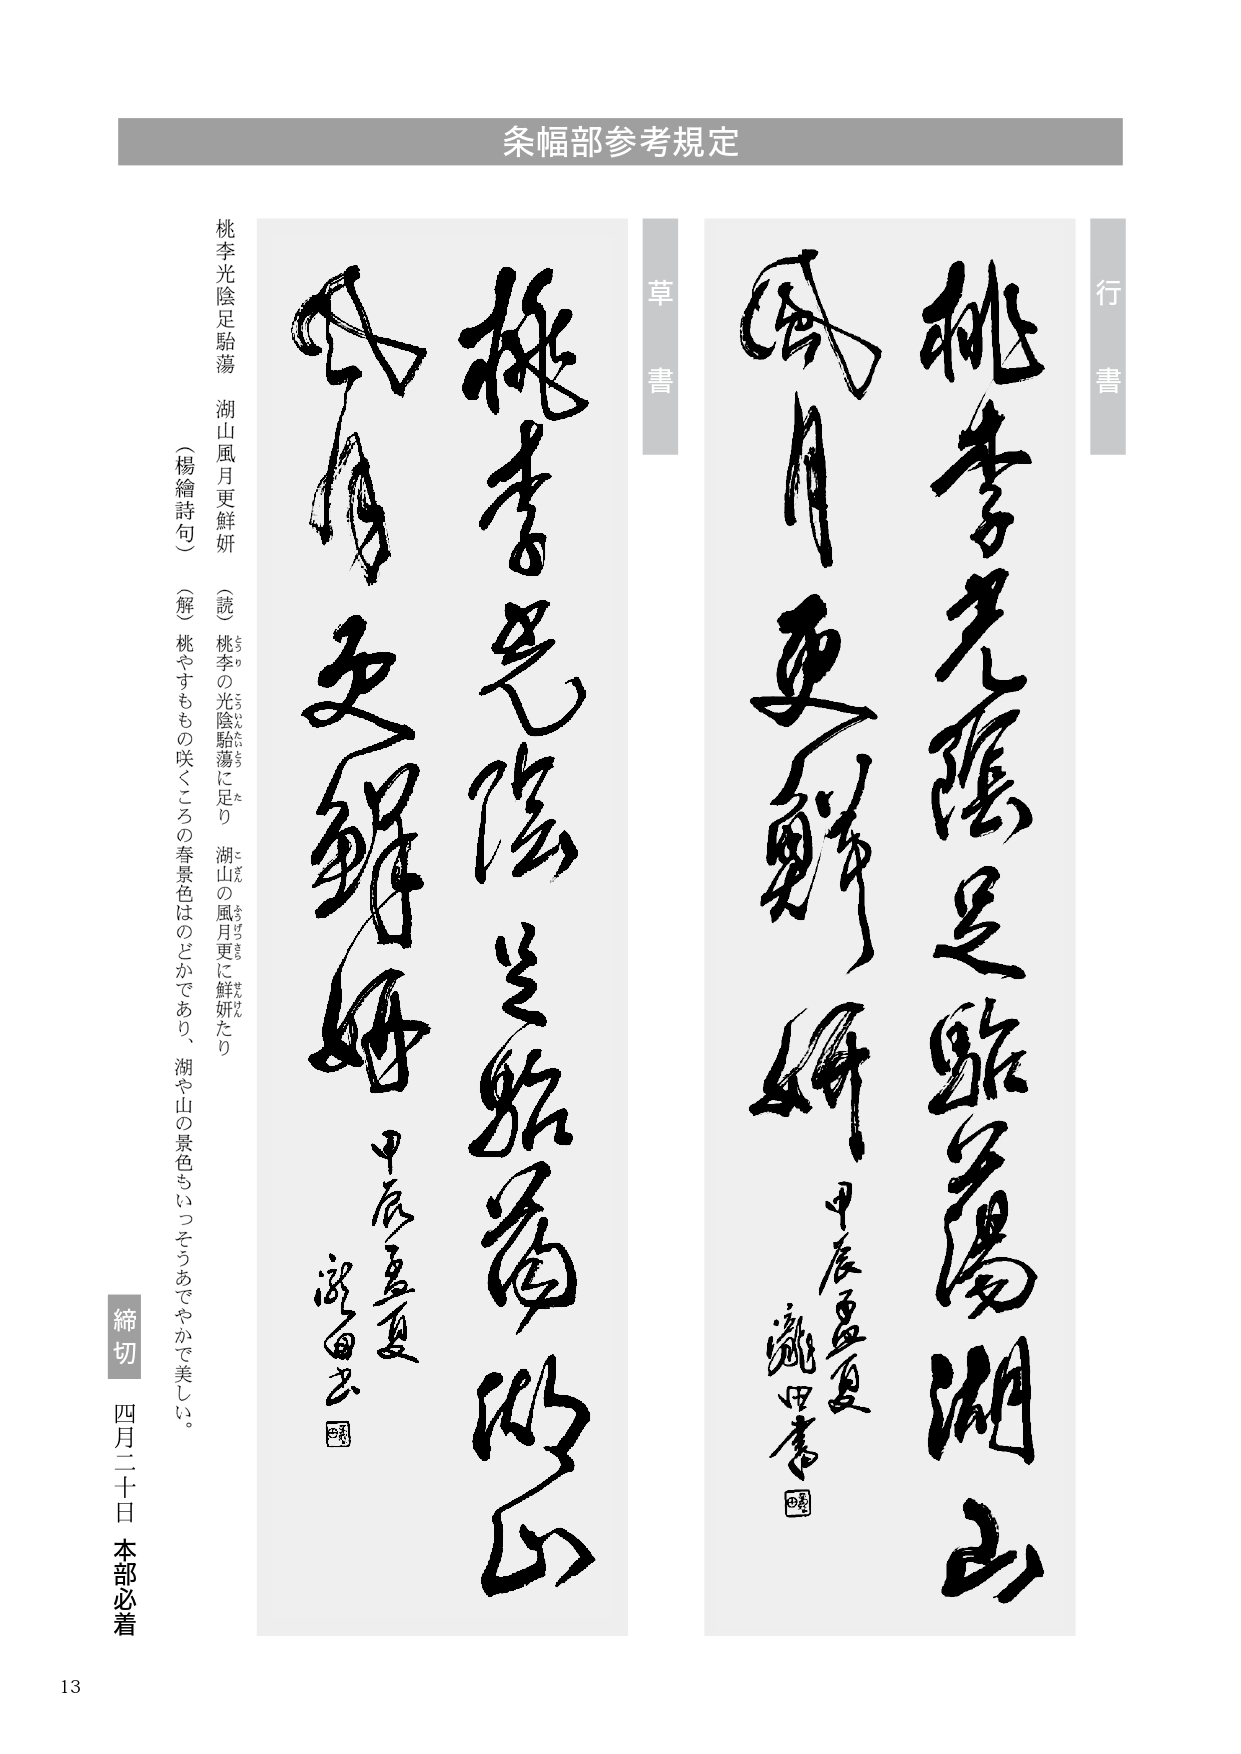 条幅部参考規定
行書
桃李光陰足駘蕩湖山
風月更鮮妍
甲辰孟夏
瀧田書
草書
桃李光陰足駘蕩湖山
風月更鮮妍
甲辰孟夏
瀧田書
桃李光陰足駘蕩　湖山風月更鮮妍　（読）桃李の光陰駘蕩に足り　湖山の風月更に鮮妍たり
とうり　こういんたいとう　た　こざん　ふうげつさら　せんけん
（楊繪詩句）　（解）桃やすももの咲くころの春景色はのどかであり、湖や山の景色もいっそうあでやかで美しい。
締切　四月二十日　本部必着
13